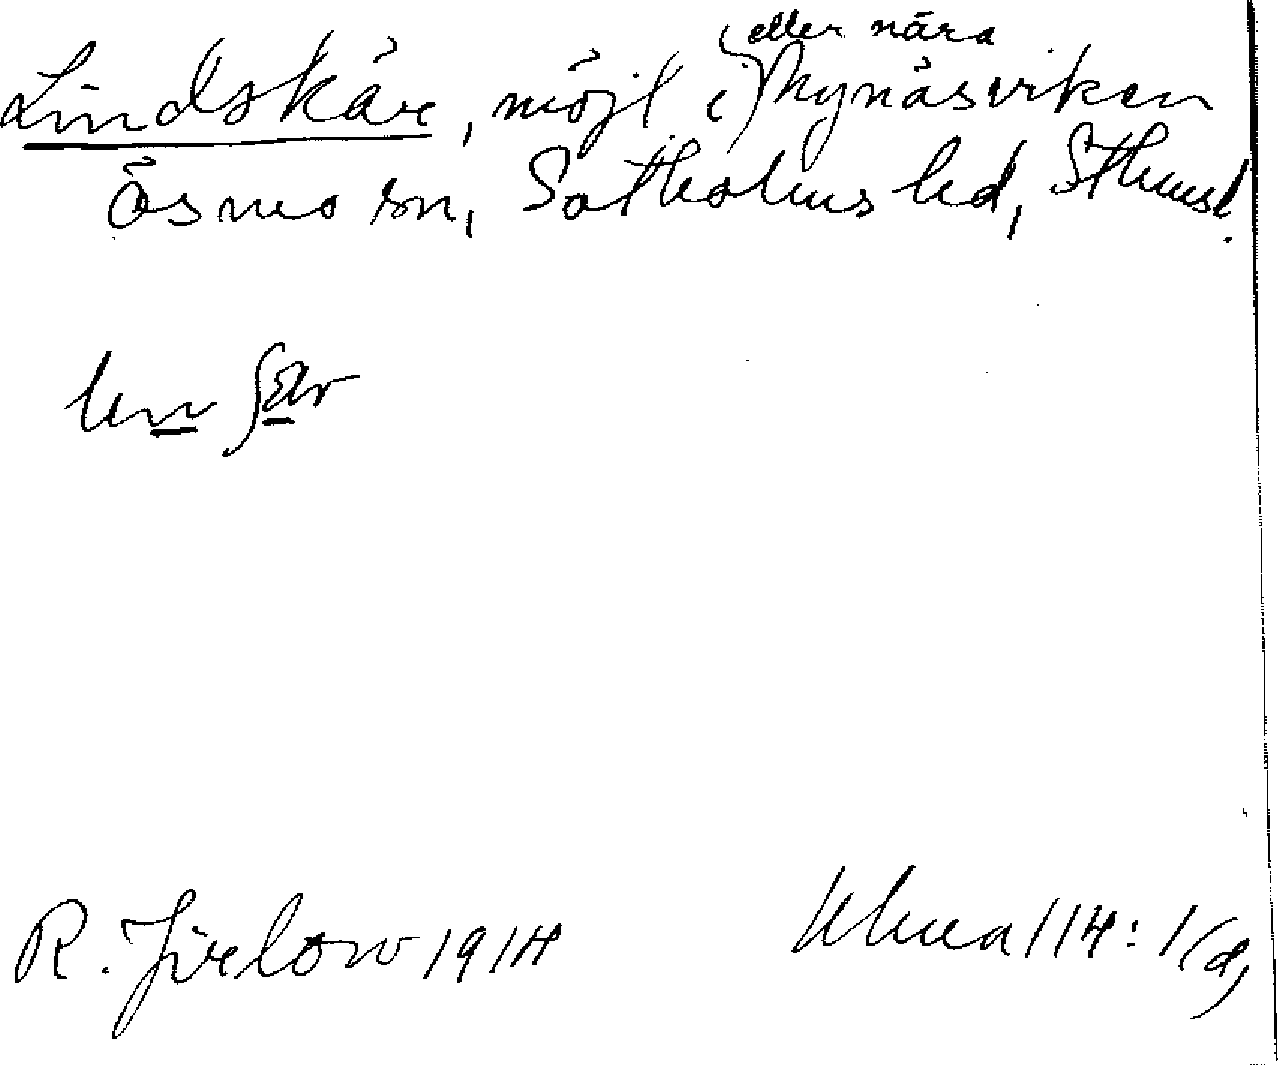 Lindskär, möjl i (eller nära) Nynäsviken
Ösmo sn, Sotholms hd, Sthmsl.
R. Jirlow 1914